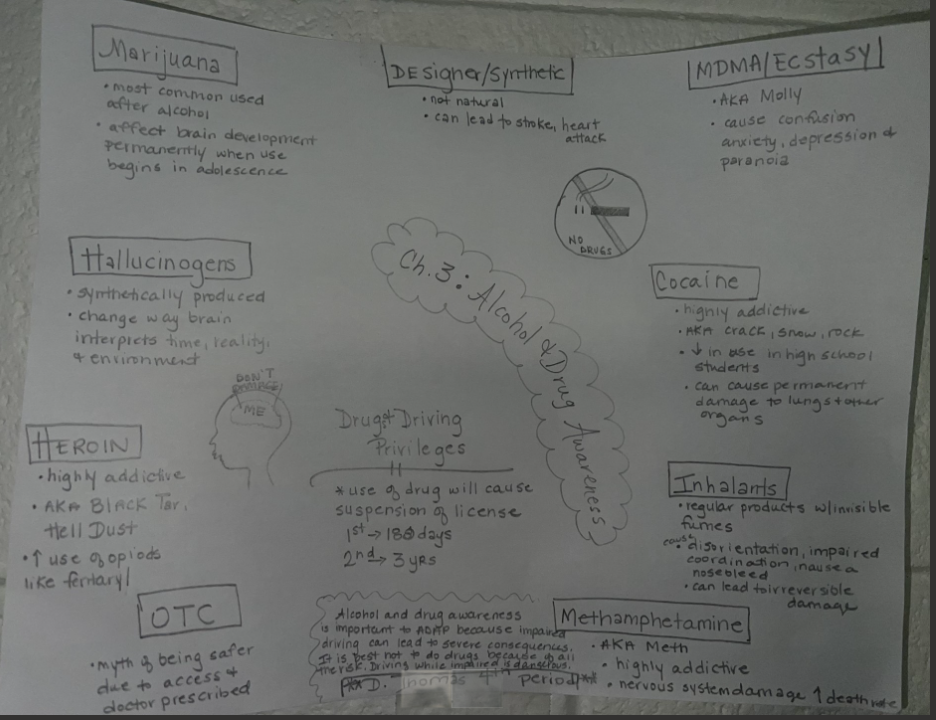 Marijuana
• most common used
after alcohol
• affect brain development
permanently when use
begins in adolescence
DEsigner/Synthetic
• not natural
• can lead to stroke, heart
attack
MDMA/Ecstasy
• AKA Molly
• cause confusion
anxiety, depression &
paranoia
NO
DRUGS
Ch. 3: Alcohol & Drug Awareness
Hallucinogens
• synthetically produced
• change way brain
interprets time, reality,
& environment
Cocaine
• highly addictive
• AKA crack, snow, rock
• ↓ in use in high school
students
• can cause permanent
damage to lungs & other
organs
DON'T
DAMAGE
ME
Drug & Driving
Privileges
* use of drug will cause
suspension of license
1st → 180 days
2nd → 3 yrs
HEROIN
• highly addictive
• AKA Black Tar,
Hell Dust
• ↑ use of opiods
like fentanyl
Inhalants
• regular products w/invisible
fumes
cause
• disorientation, impaired
coordination, nausea
nosebleed
• can lead to irreversible
damage
OTC
• myth of being safer
due to access &
doctor prescribed
Alcohol and drug awareness
is important to ADAP because impaired
driving can lead to severe consequences.
It is best not to do drugs because of all
the risk. Driving while impaired is dangerous.
D. Thomas 4th period
Methamphetamine
• AKA Meth
• highly addictive
• nervous system damage ↑ death rate